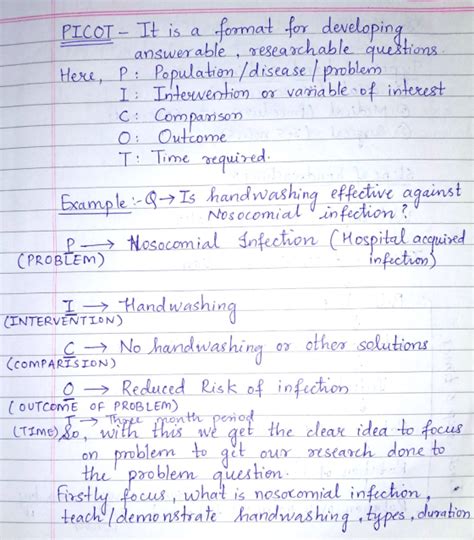 PICOT - It is a format for developing
answerable, researchable questions.
Here, P : Population/disease/problem
I : Intervention or variable of interest
C : Comparison
O : Outcome
T : Time required.
Example :- Q → Is handwashing effective against
Nosocomial infection?
P → Nosocomial Infection (Hospital acquired
(PROBLEM) infection)
I → Handwashing
(INTERVENTION)
C → No handwashing or other solutions
(COMPARISION)
O → Reduced Risk of infection
(OUTCOME OF PROBLEM)
T → Three month period
(TIME) So, with this we get the clear idea to focus
on problem to get our research done to
the problem question.
Firstly focus, what is nosocomial infection,
teach/demonstrate handwashing, types, duration